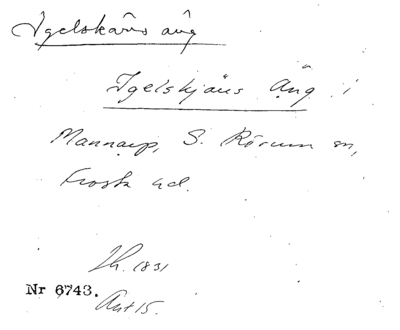 Igelskärs äng
Igelskjärs Äng i
Mannarp, S. Rörum sn,
Frosta hd.
Lh. 1831
Nr 6743.
Akt 15.